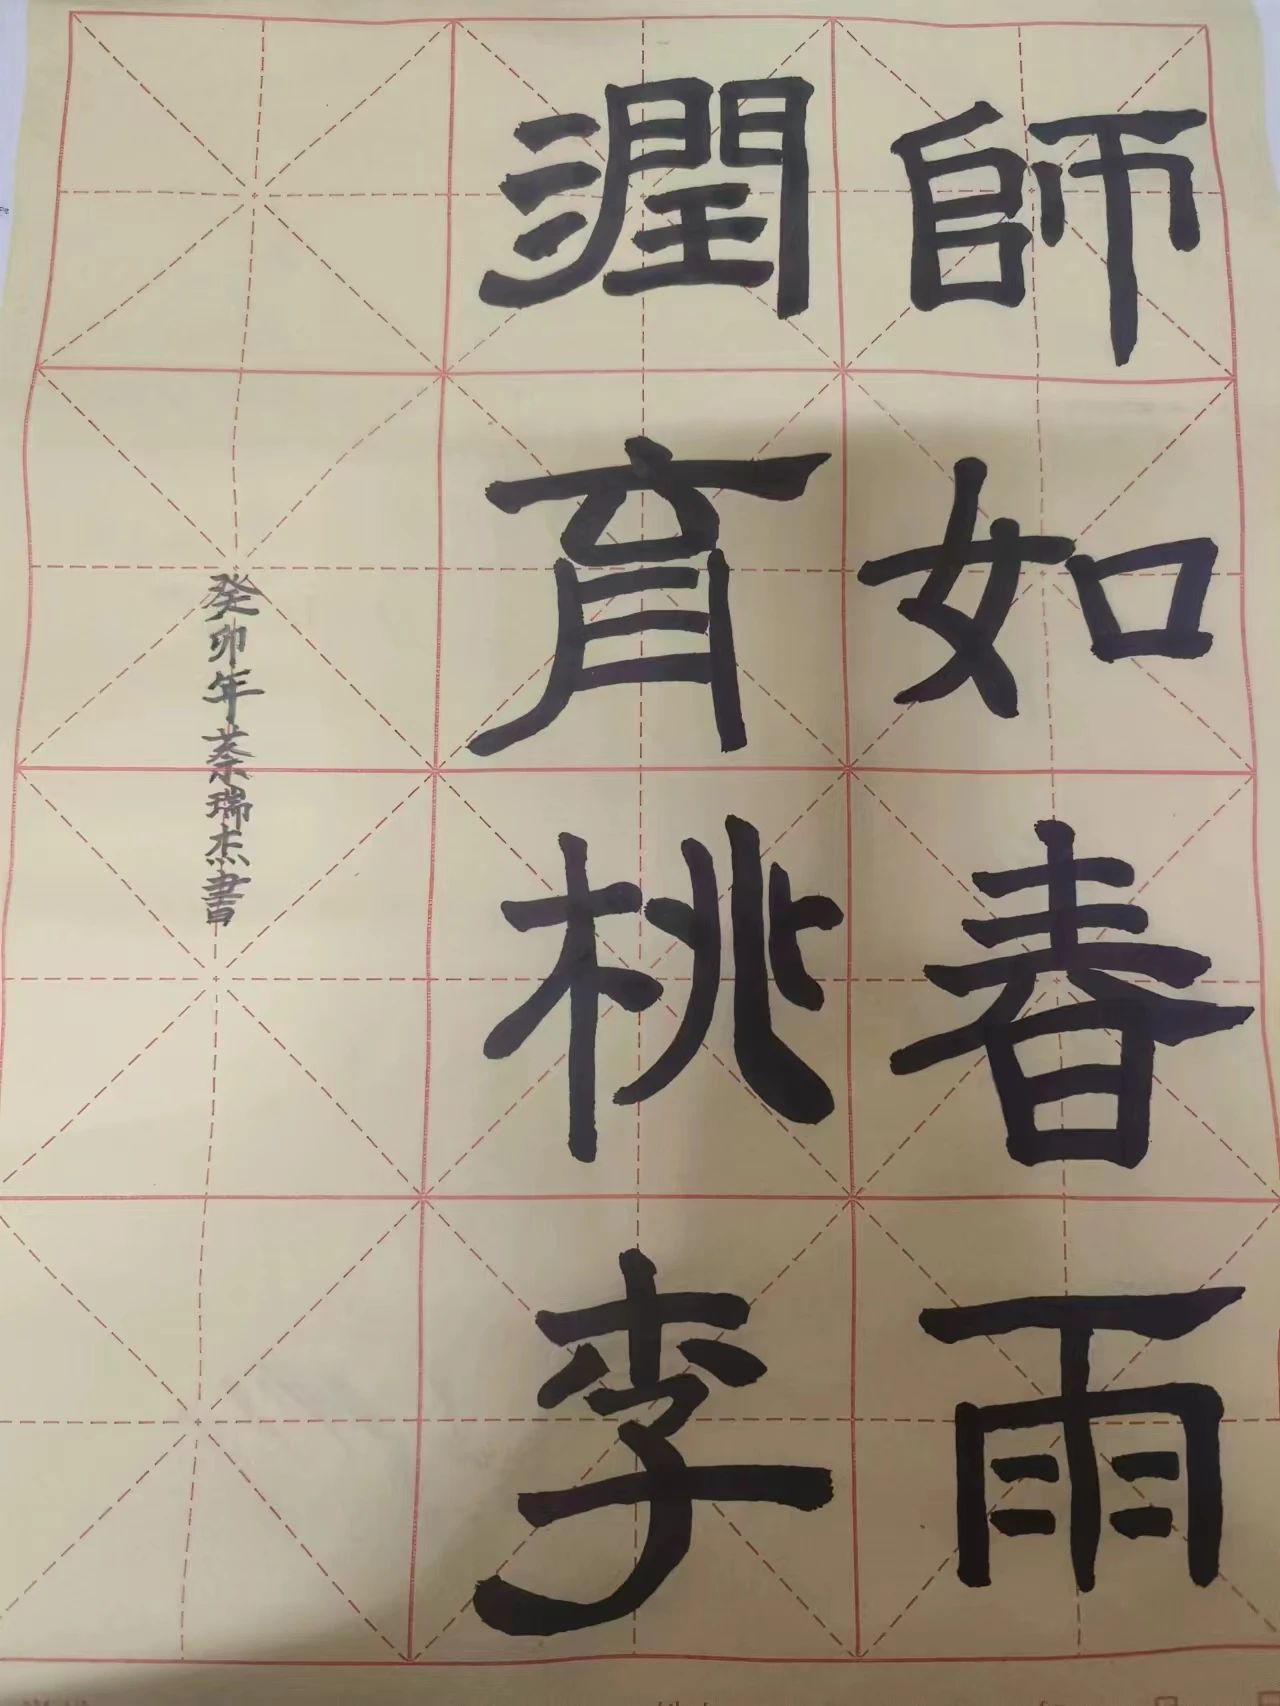 師如春雨
潤育桃李
癸卯年蔡瑞杰書